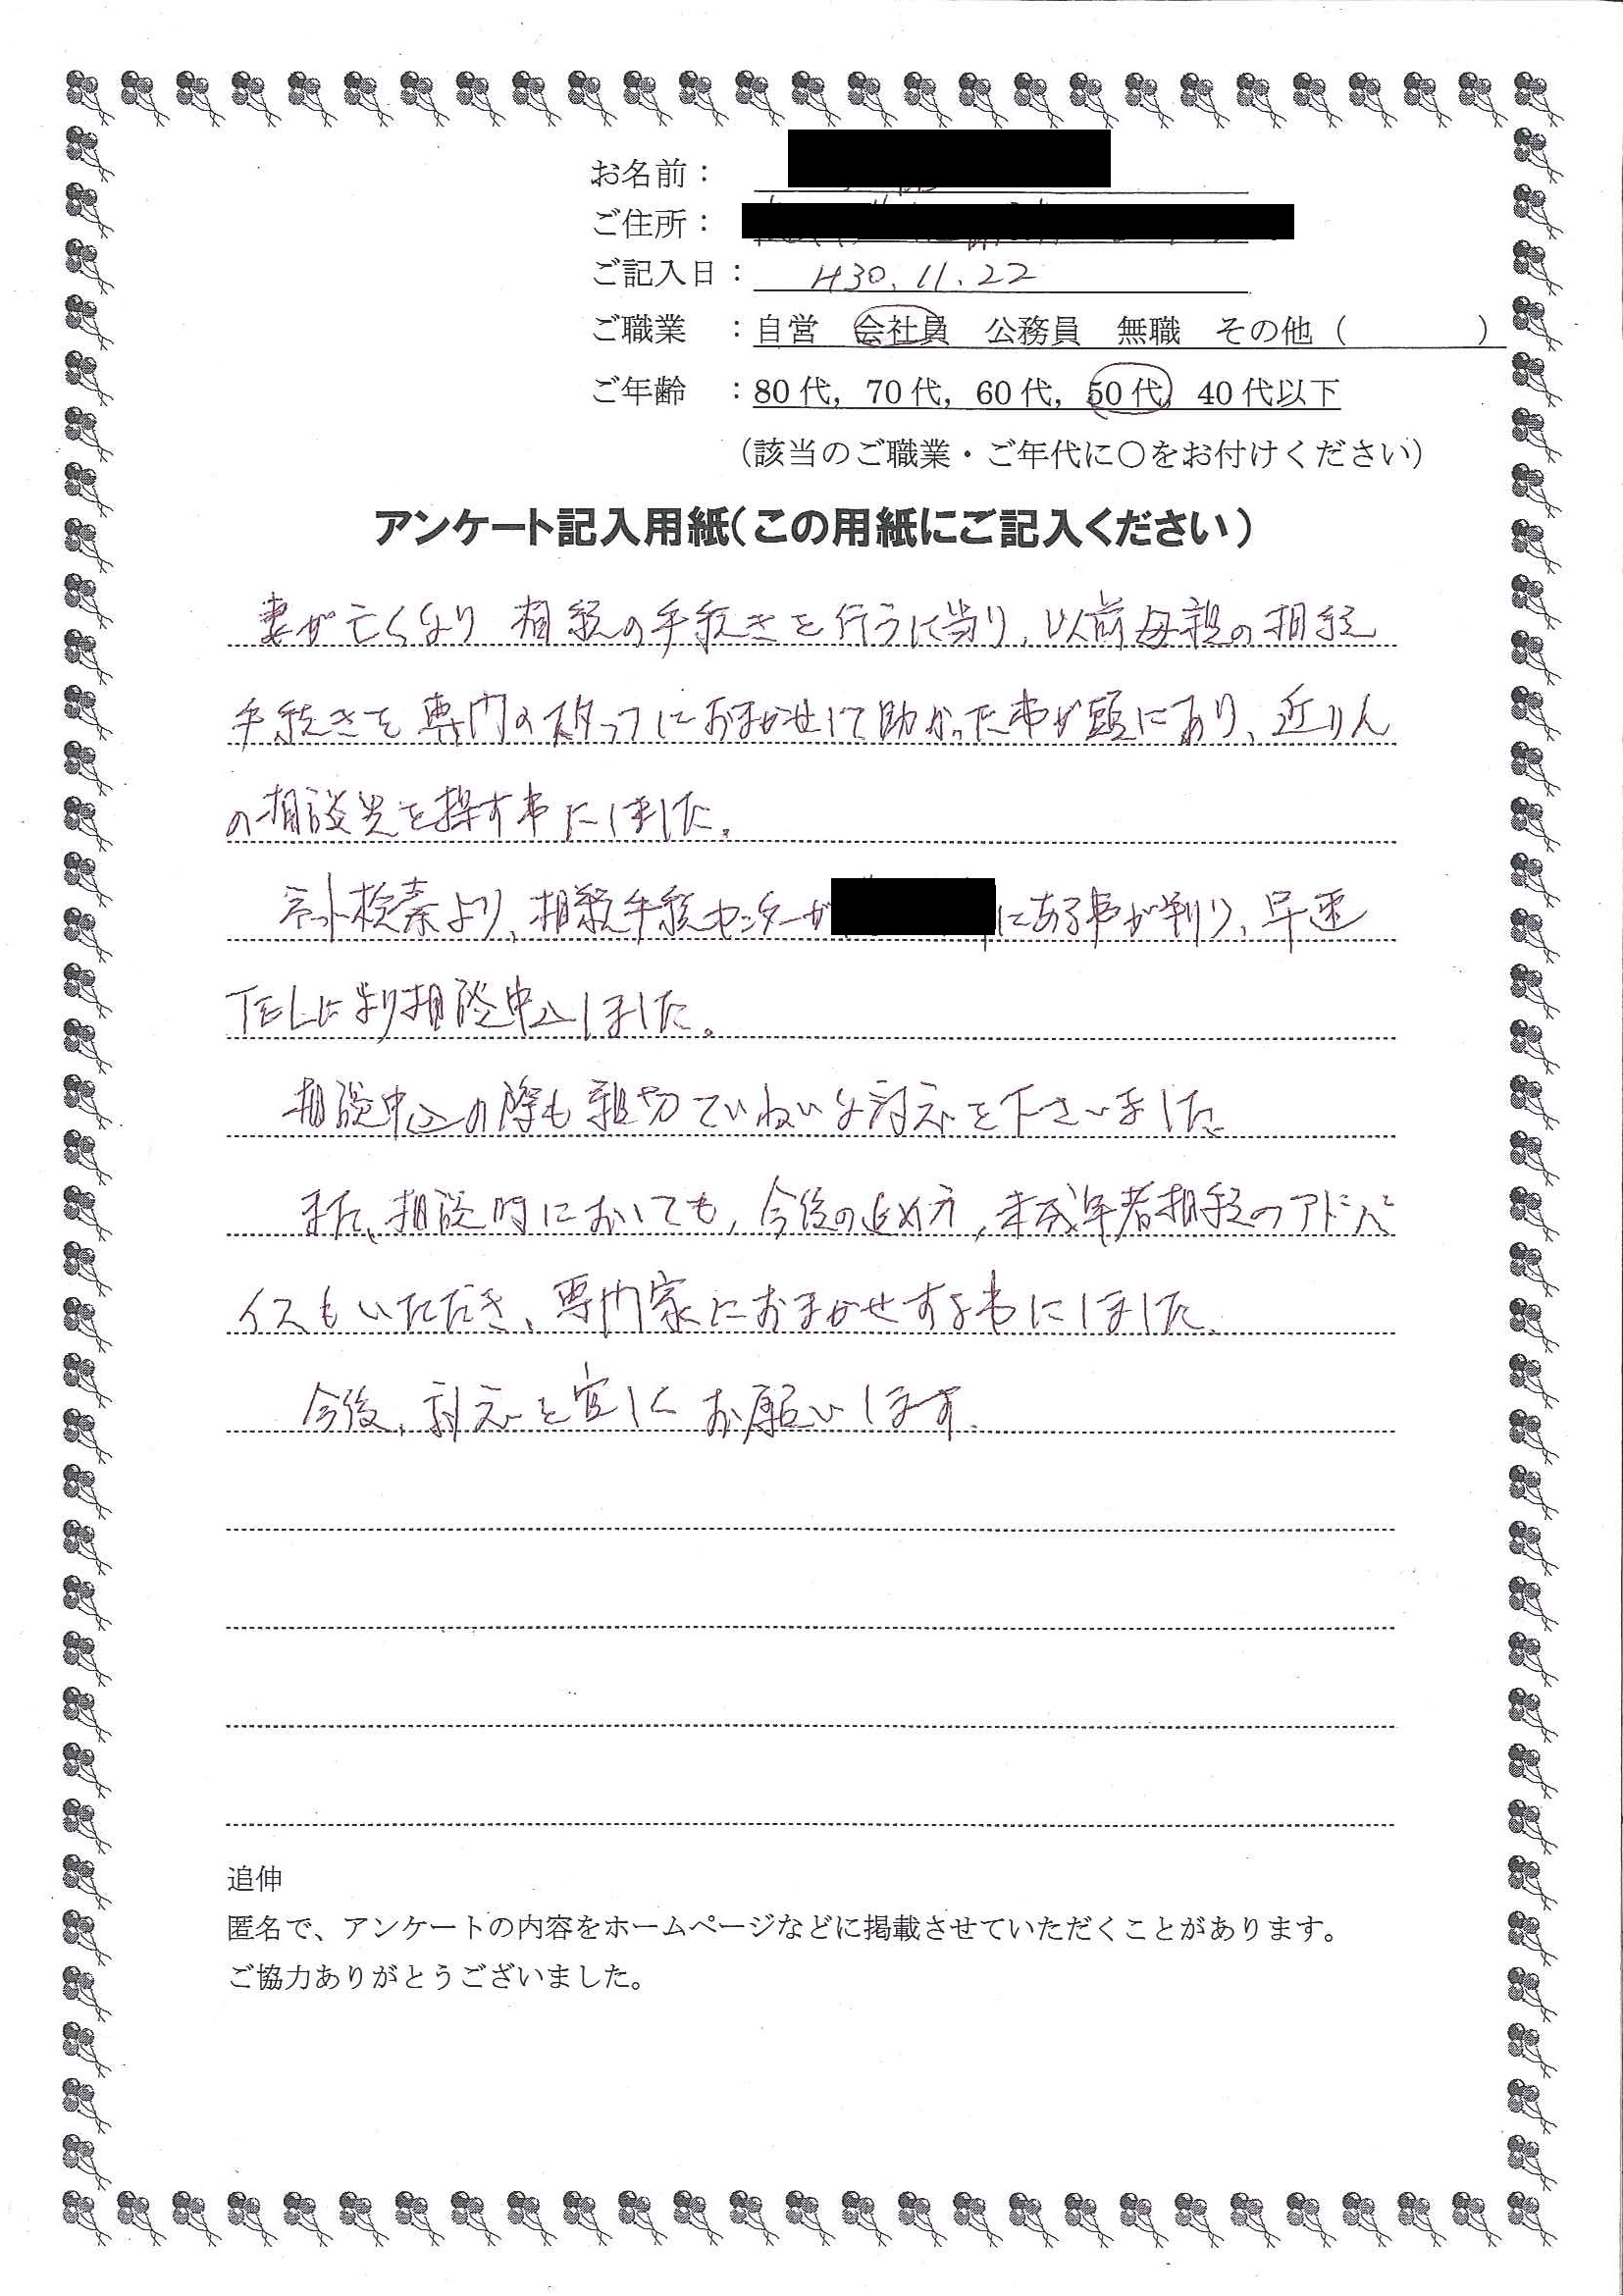 お名前：
ご住所：
ご記入日： H30.11.22
ご職業 ：自営 会社員 公務員 無職 その他（ ）
ご年齢 ：80代，70代，60代，50代，40代以下
（該当のご職業・ご年代に○をお付けください）
アンケート記入用紙（この用紙にご記入ください）
妻が亡くなり 相続の手続きを行うに当り、以前母親の相続
手続きを専門のスタッフにおまかせして助かった事が頭にあり、近りん
の相談先を探す事にしました。
ネット検索より、相続手続センターが にある事が判り、早速
TELにより相談申込しました。
相談申込の際も親切ていねいな対応を下さいました。
また、相談時においても、今後の進め方、未成年者相続のアドバ
イスもいただき、専門家におまかせする事にしました。
今後、対応を宜しくお願いします。
追伸
匿名で、アンケートの内容をホームページなどに掲載させていただくことがあります。
ご協力ありがとうございました。